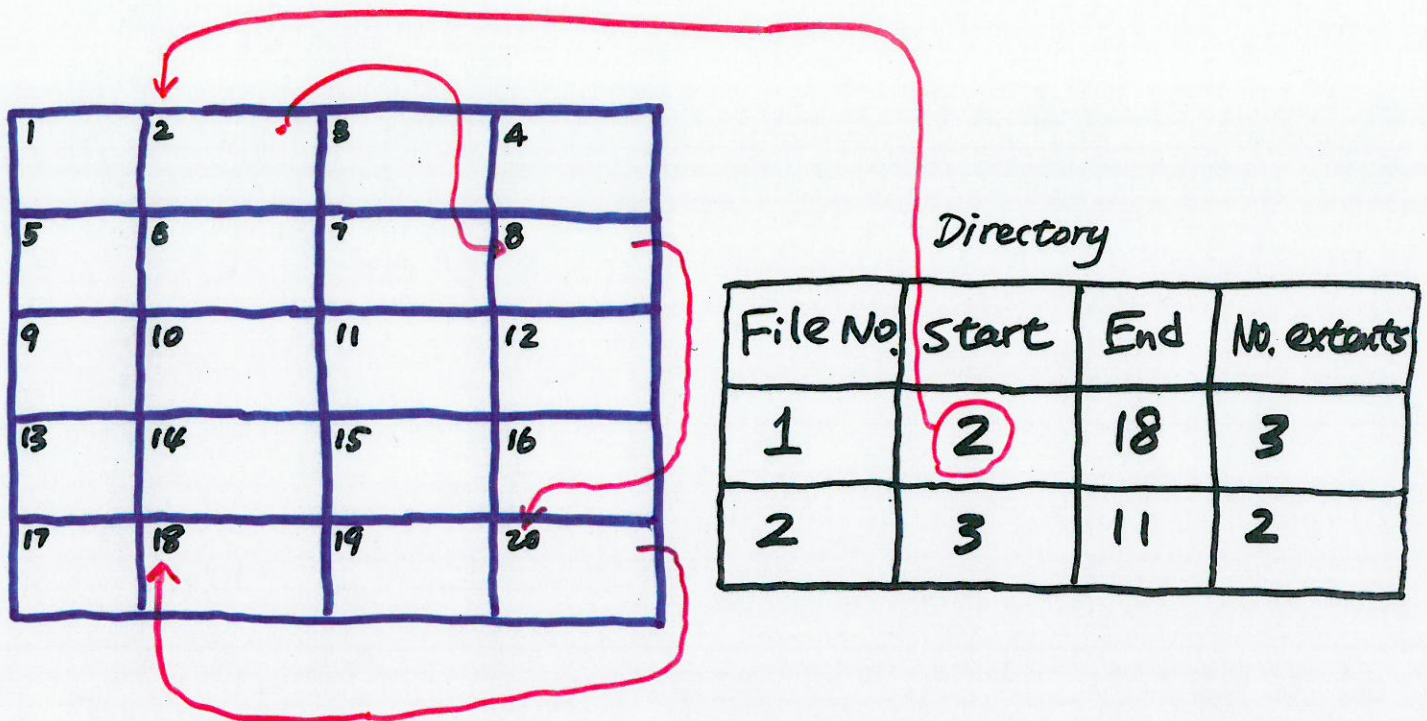 1 2 3 4
5 6 7 8
9 10 11 12
13 14 15 16
17 18 19 20
Directory
File No. Start End No. extents
1 2 18 3
2 3 11 2